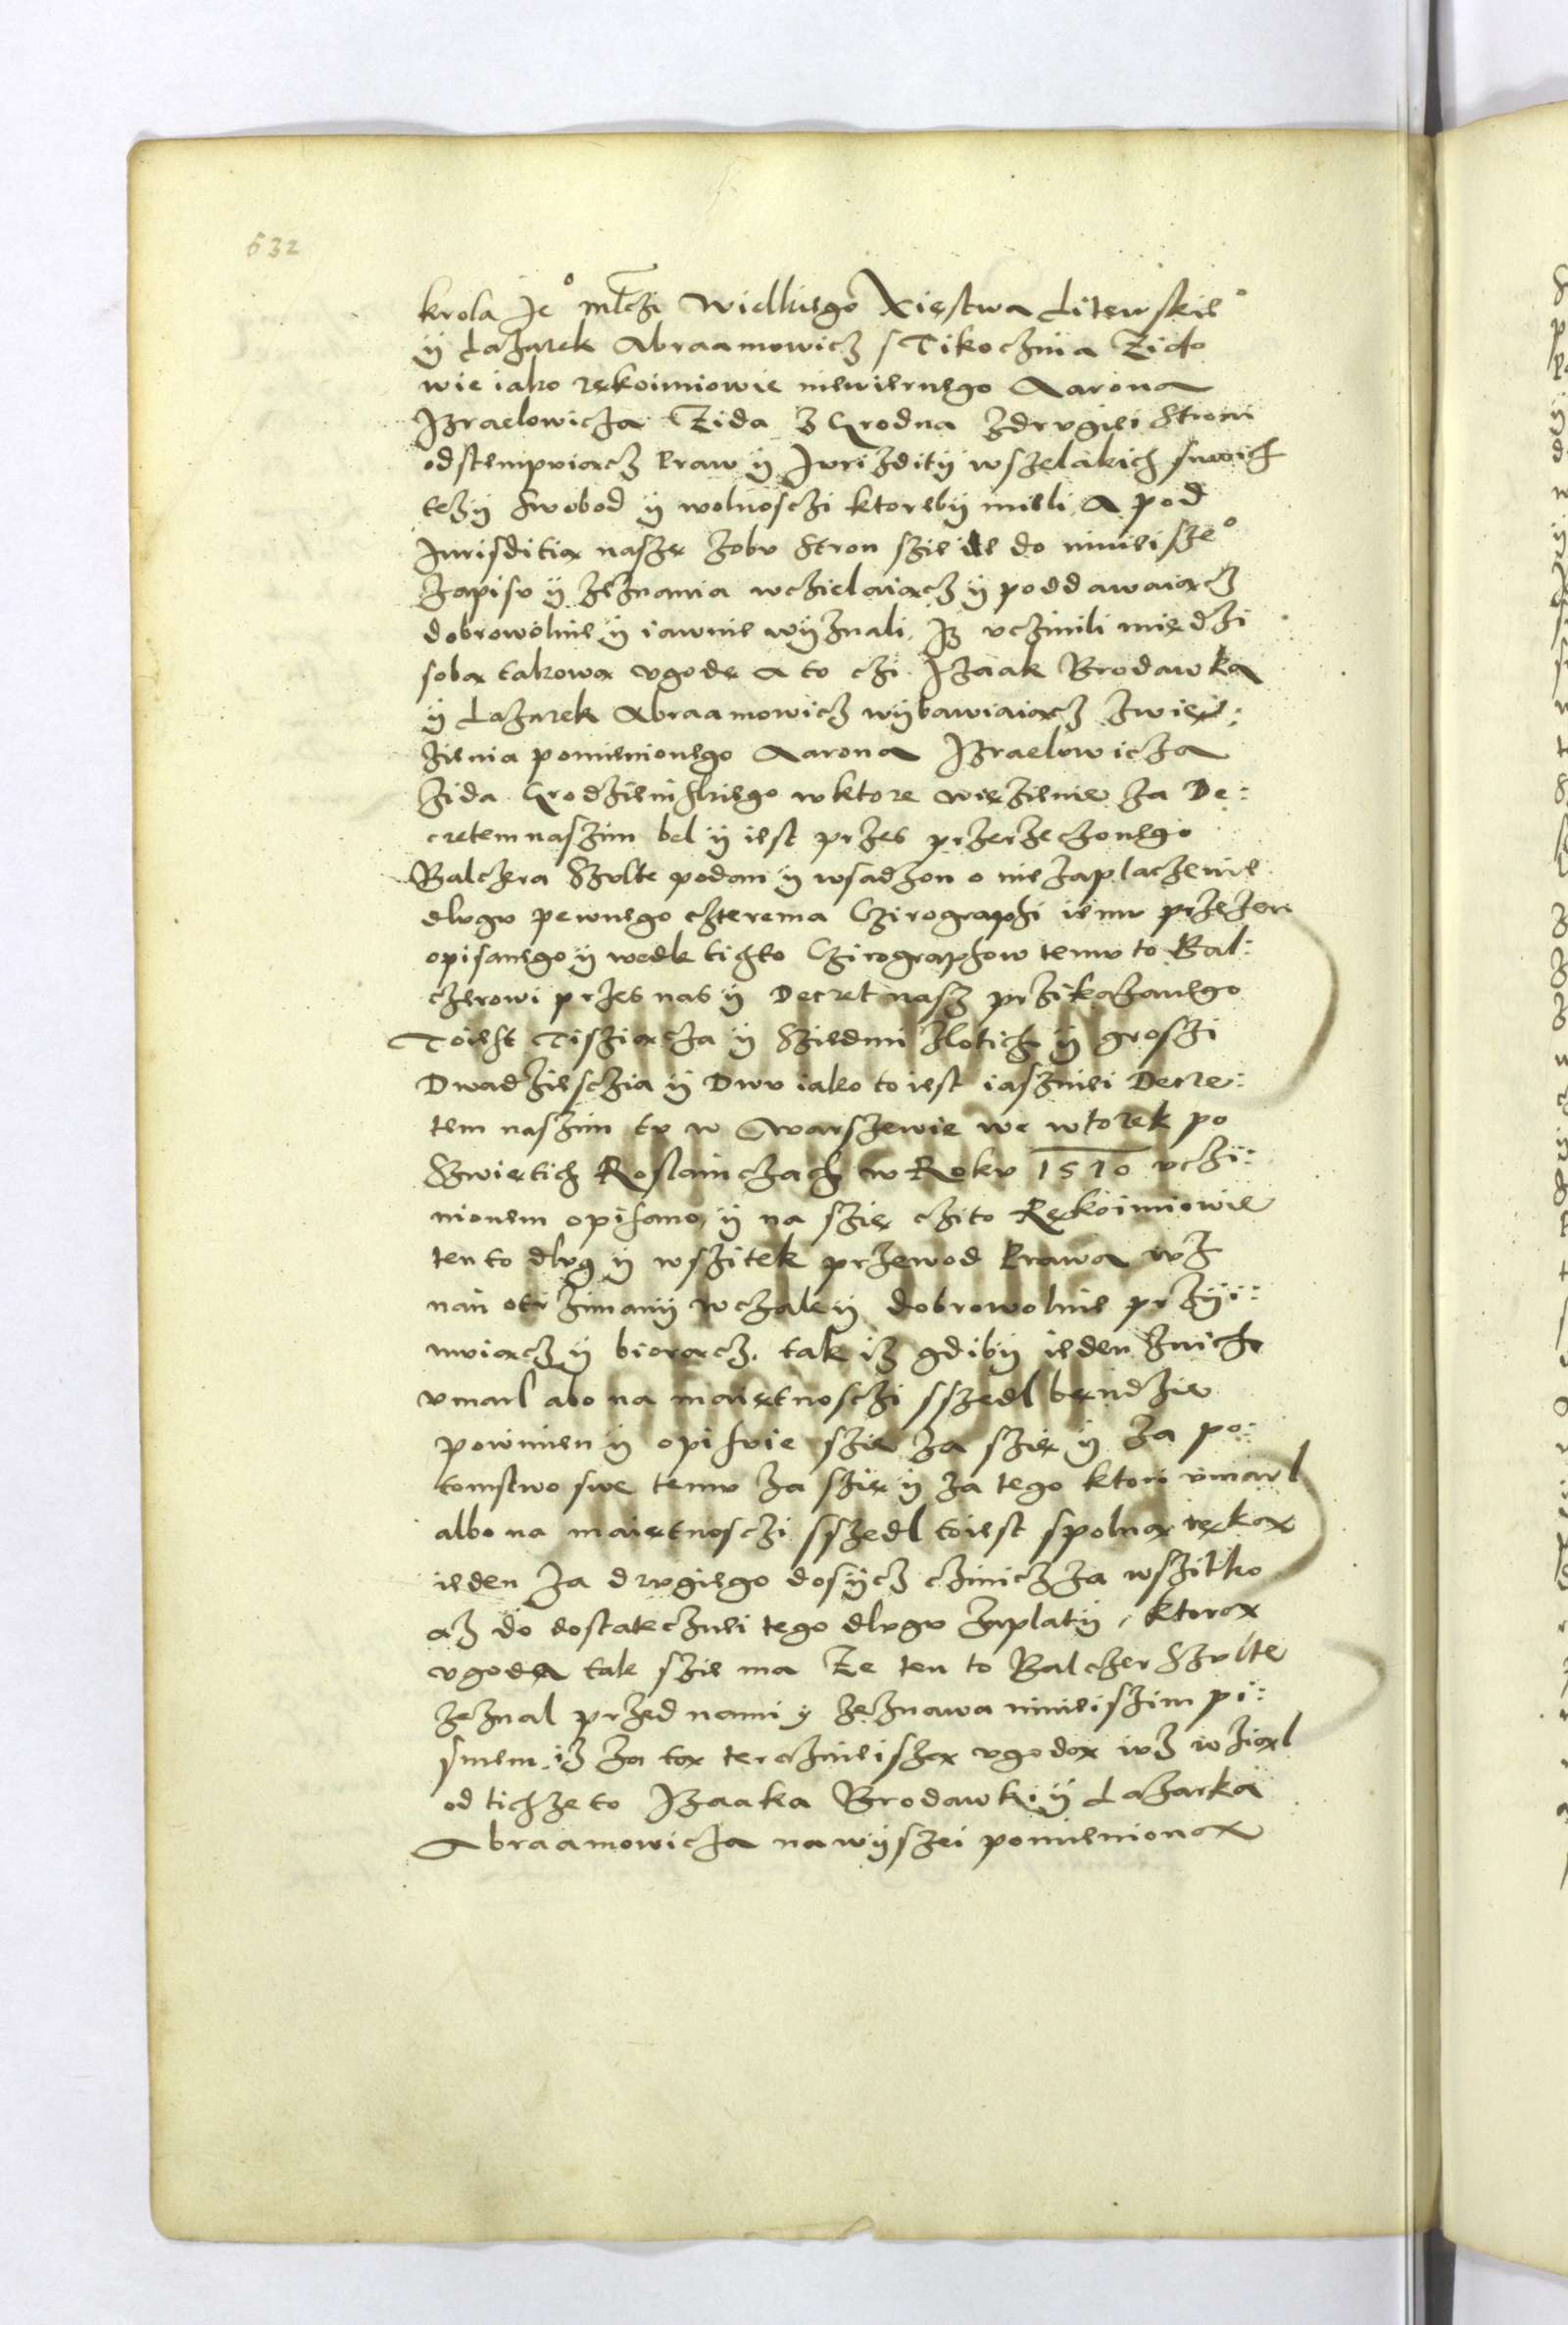 632
krola Je° mlczi Wielkiego Xięstwa Litewskie°
ÿ Lazarek Abraamowicz s Tikoczina Zido
wie iako rękoimiowie niewiernego Aarona
Izraelowicza Zida z Grodna zdrugiei stroni
odstempuiącz praw ÿ Jurizditÿ wszelakich swoich
tezÿ swobod ÿ wolnosczi ktorebÿ mieli A pod
Jurisditią naszę zobu stron szie do ninieisze°
zapisu ÿ zeznania wczielaiącz ÿ poddawaiącz
dobrowolnie ÿ iawnie wÿznali, Iz vczinili międzi
sobą takową vgodę A to czi Izaak Brodawka
ÿ Lazarek Abraamowicz wÿbawiaiącz zwię:
zienia pomienionego Aarona Izraelowicza
zida Grodzienskiego wktore więzienie za De:
cretem naszim bel ÿ iest przes przerzeczonego
Balczera Szulte podan ÿ wsadzon o niezaplaczenie
dlugu pewnego czterema Czirographi iemu przezen
opisanego ÿ wedle tichto Czirographow temu to Bal:
czerowi przes nas ÿ Decret nasz przikazanego
Toiest Tisziącza ÿ Sziedmi zlotich ÿ groszi
Dwadziesczia ÿ Dwu iako to iest iasniei Decre:
tem naszim tu w Warszewie we wtorek po
Szwiętich Roslainczach w Roku 1570 vczi:
nionem opisano, ÿ na szię czito Rękoimiowie
ten to dlug ÿ wszitek przewod prawa wz
nan otrzimanÿ wczale ÿ dobrowolnie przÿi:
muiącz ÿ biorącz, tak iz gdibÿ ieden znich
vmarl abo na maiętnosczi sszedl bendzie
powinien ÿ opisuie szie za szię ÿ za po:
tomstwo swe temu za szię ÿ za tego ktori vmarl
albo na maiętnosczi sszedl toiest spolną ręką
ieden za drugiego dosÿcz czinicz za wszitko
az do dostateczniei tego dlugu zaplatÿ, ktorą
vgodą tak szie ma Ze ten to Balczer Szulte
zeznal przed nami y zeznawa ninieiszim pi:
smem, iz za tą teraznieiszą vgodą iuz wziąl
od tichze to Izaaka Brodawki ÿ Lazarka
Abraamowicza na wÿszei pomienioną